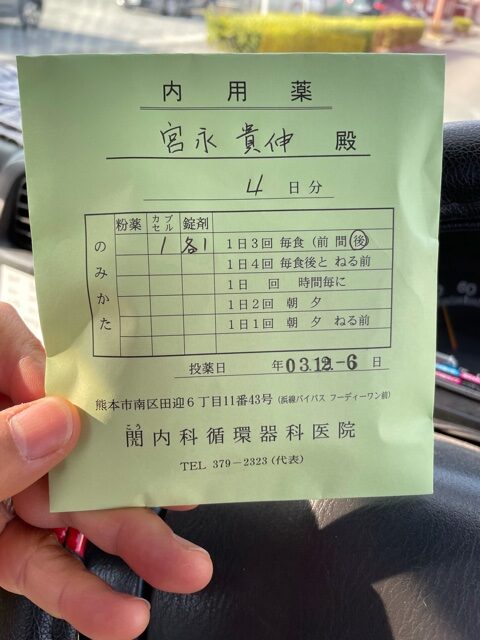 内用薬
宮永 貴伸 殿
4 日分
のみかた
粉薬 カプセル 錠剤
1 各1 1日3回 毎食(前 間 後)
1日4回 毎食後と ねる前
1日 回 時間毎に
1日2回 朝 夕
1日1回 朝 夕 ねる前
投薬日 年 03.12.-6 日
熊本市南区田迎6丁目11番43号(浜線バイパス フーディーワン前)
こう
閤内科循環器科医院
TEL 379-2323(代表)